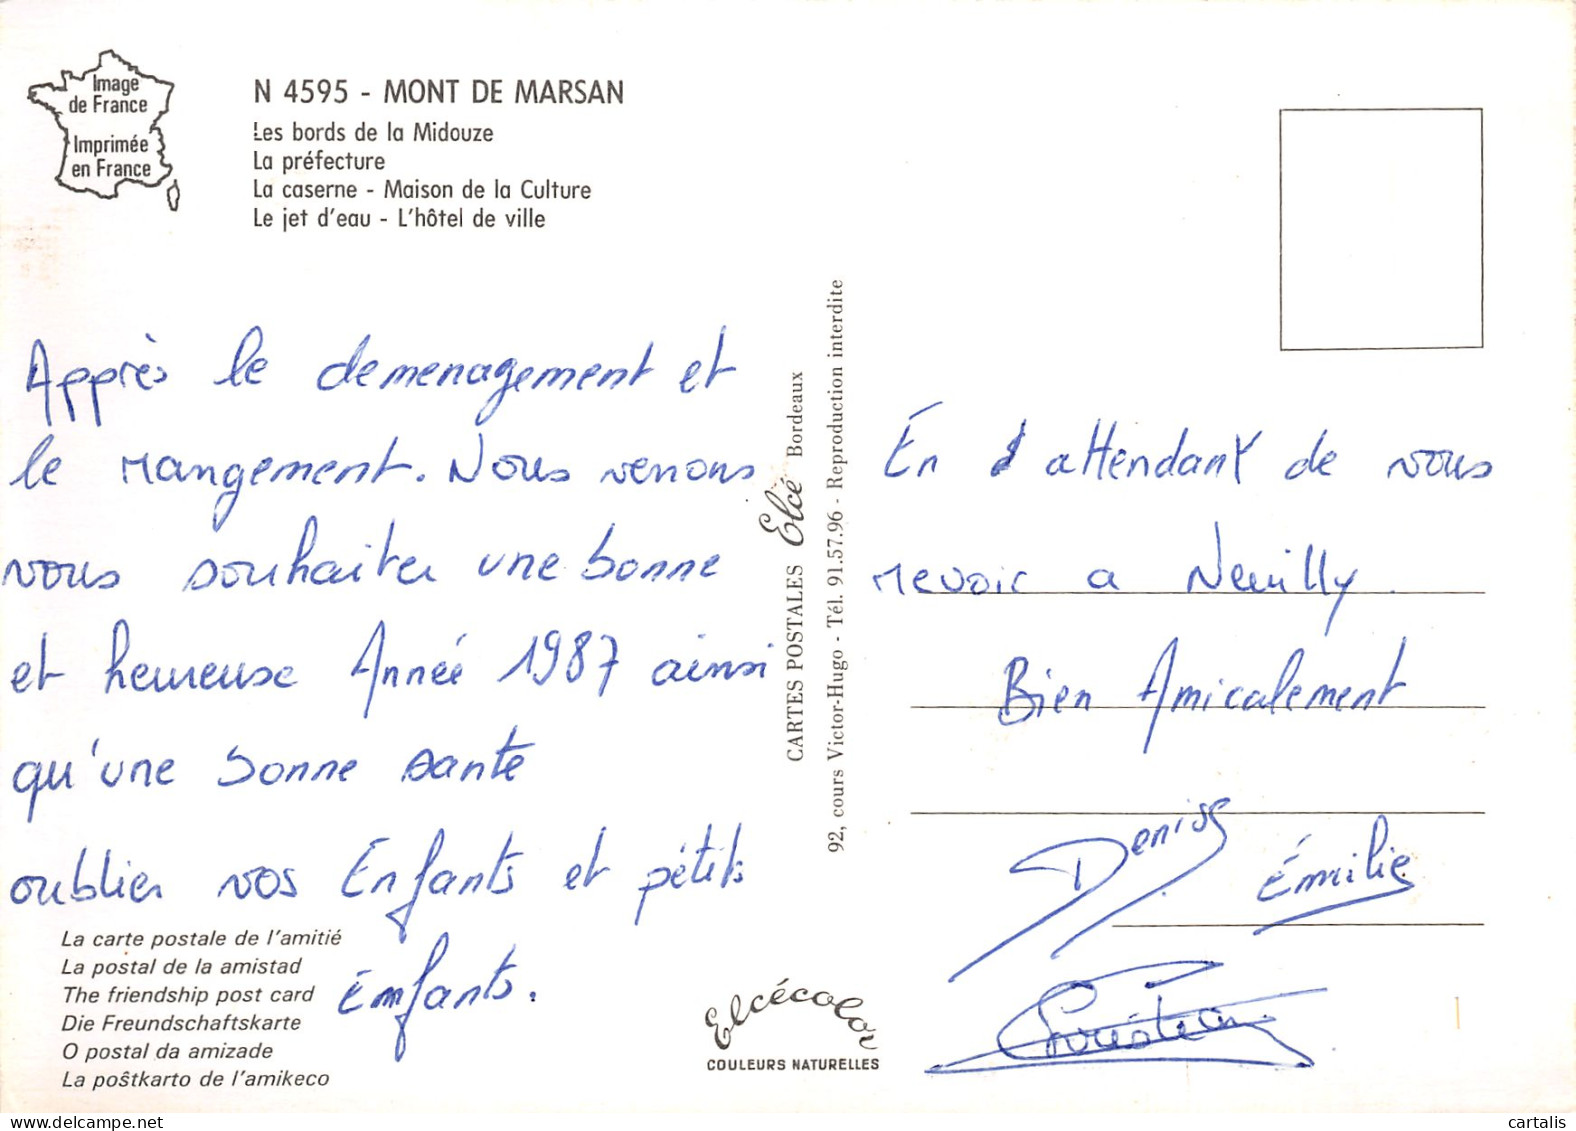 Image
de France
Imprimée
en France
N 4595 - MONT DE MARSAN
Les bords de la Midouze
La préfecture
La caserne - Maison de la Culture
Le jet d'eau - L'hôtel de ville
Apprès le demenagement et
le rangement. Nous venons
vous souhaiter une bonne
et heureuse Année 1987 ainsi
qu'une bonne sante
oublier vos Enfants et pétits
émfants.
La carte postale de l'amitié
La postal de la amistad
The friendship post card
Die Freundschaftskarte
O postal da amizade
La poŝtkarto de l'amikeco
CARTES POSTALES Elcé Bordeaux
92, cours Victor-Hugo - Tél. 91.57.96 - Reproduction interdite
Elcécolor
COULEURS NATURELLES
En attendant de vous
revoir a Neuilly.
Bien Amicalement
Denise
Émilie
delcampe.net
cartalis